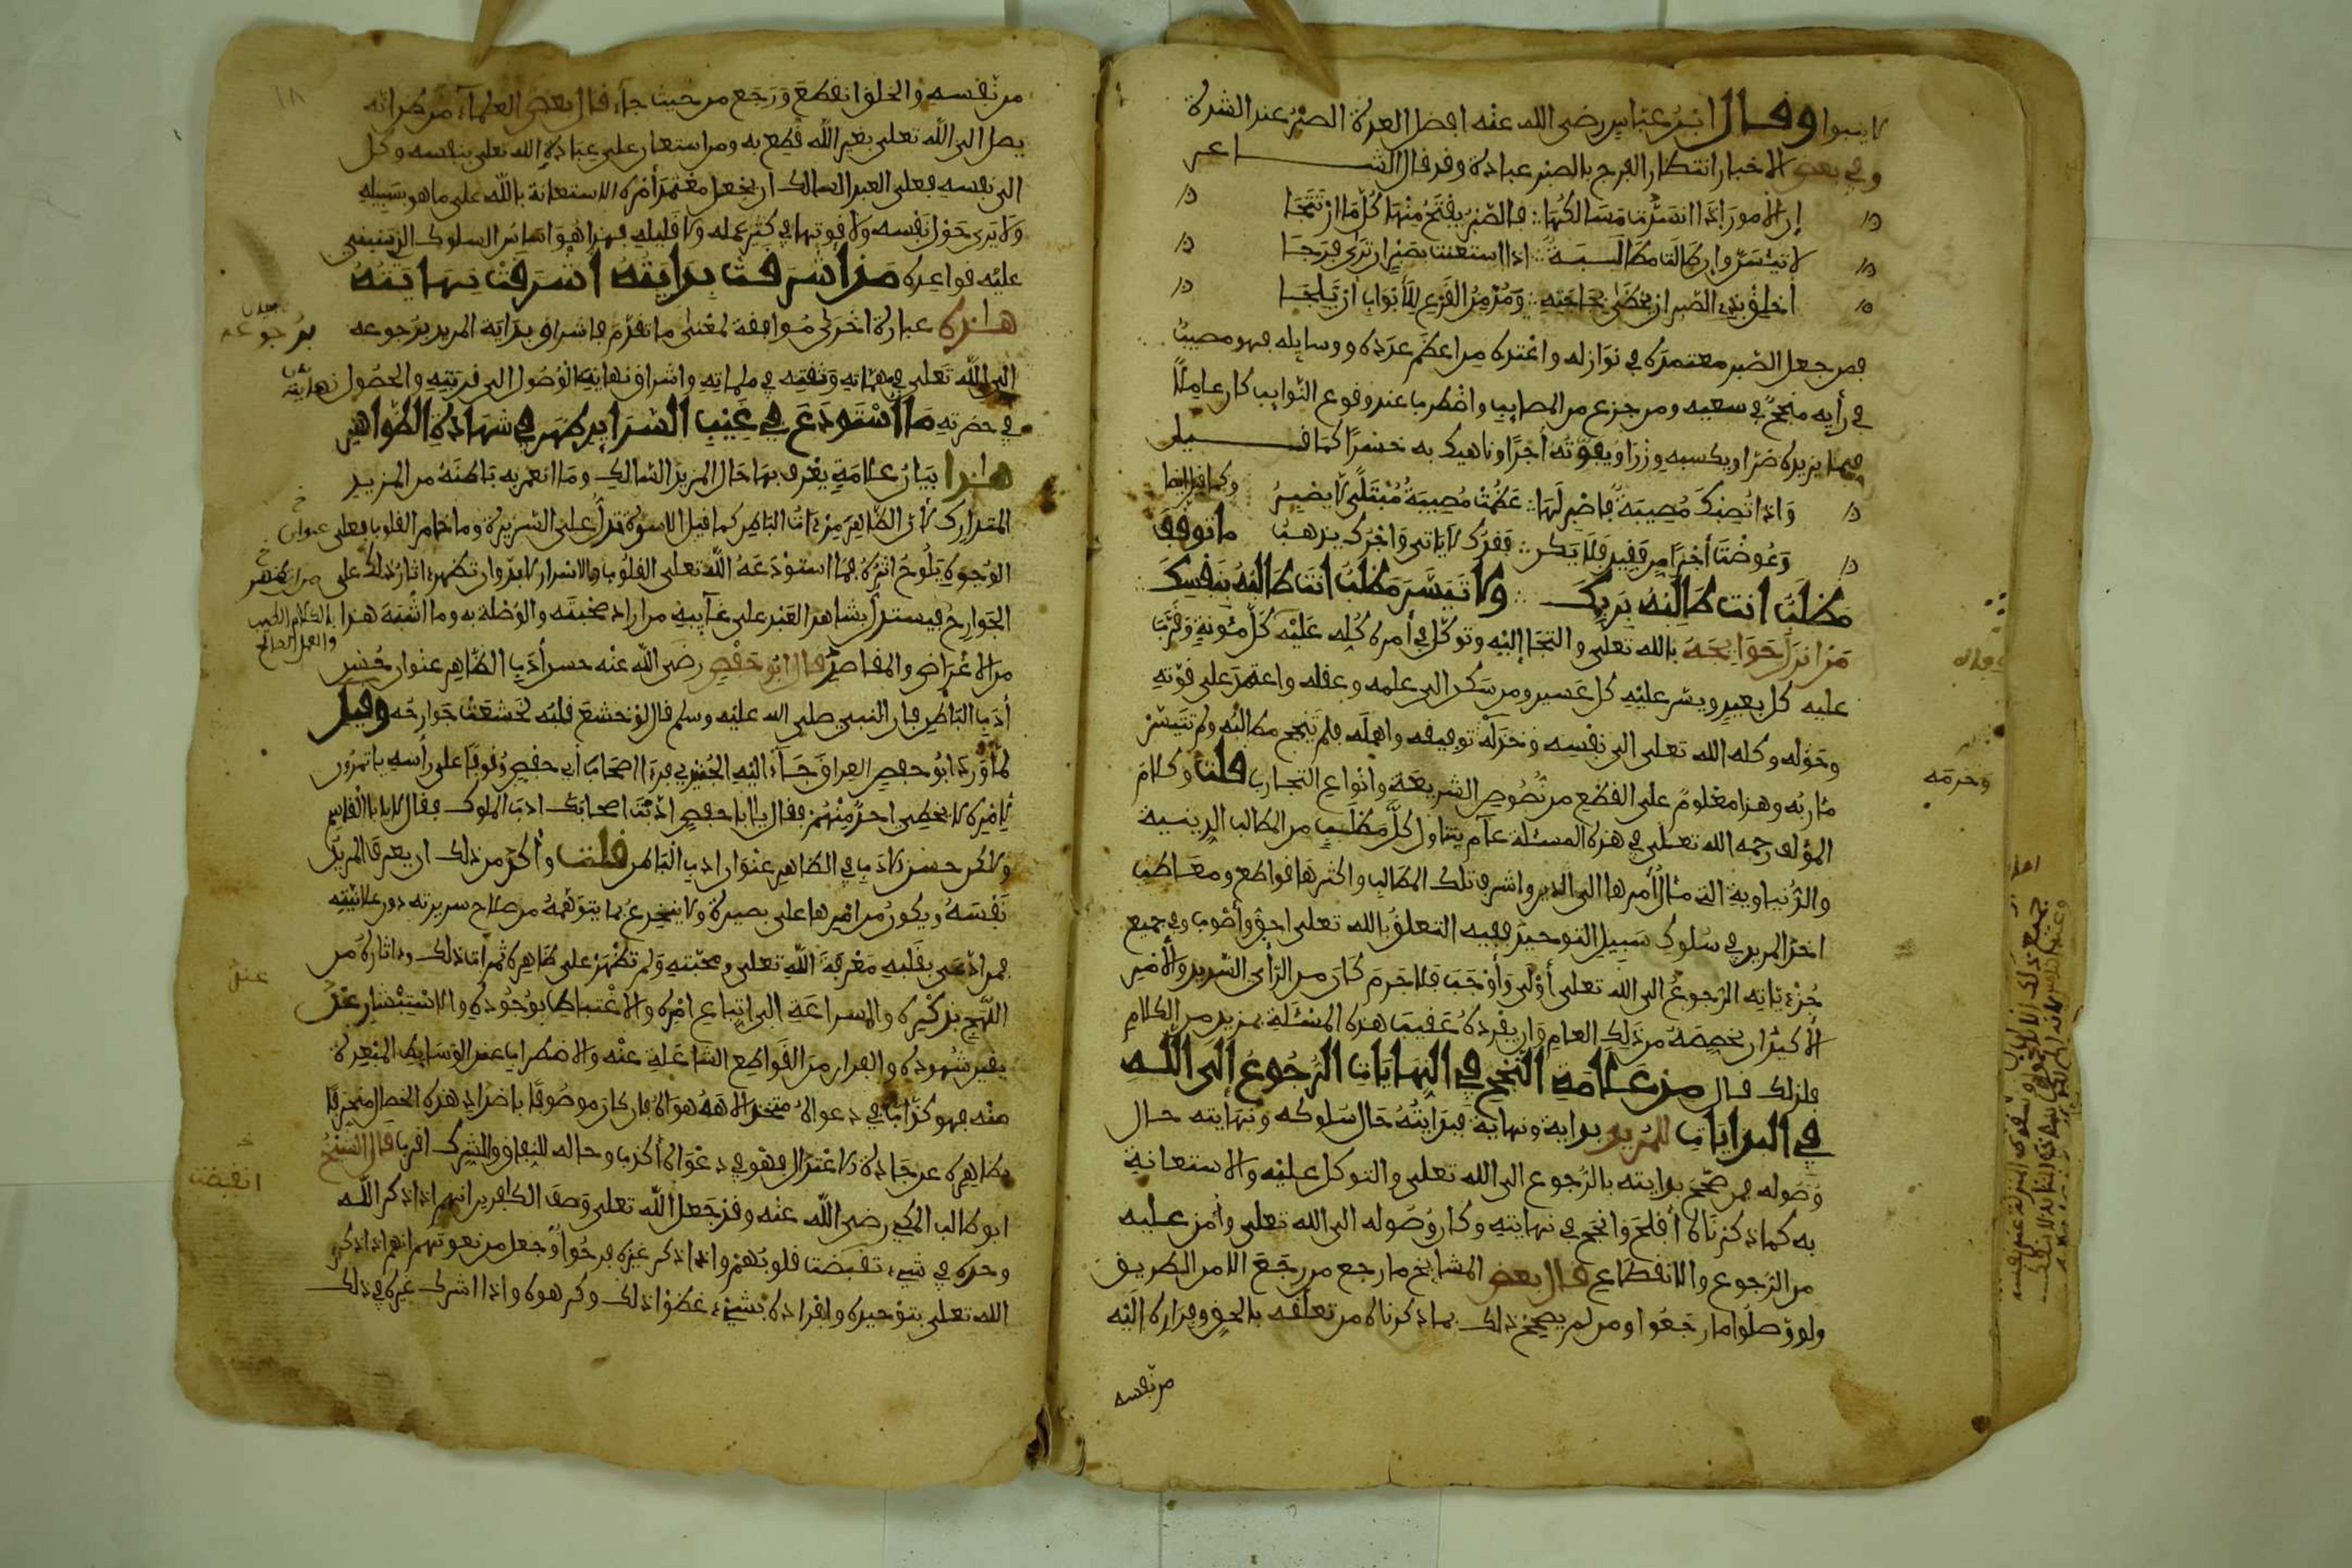 لا ينبوا وقال ابن عباس رضي الله عنه افضل العدة الصبر عند الشدة
وفي بعض الاخبار انتظار الفرج بالصبر عبادة وقد قال الشاعر
إن الأمور إذا انسدت مسالكها فالصبر يفتح منها كل ما ارتتجا
لا تيئسن وإن طالت مطالبة اذا استعنت بصبر ان ترى فرجا
أخلق بذي الصبر ان يحظى بحاجته ومدمن القرع للأبواب أن يلجا
فمن جعل الصبر معتمده في نوازله واعتده من اعظم عدده ووسايله فهو مصيب
في رأيه منجح في سعيه ومن جزع من المصايب واضطربا عند وقوع النوايب كان عاملا
فيما يزيده ضرا ويكسبه وزرا ويفوته أجرا وناهيك به خسرا كما قيل
وإذا تصبك مصيبة فاصبر لها عظمت مصيبة مبتلى لا يصبر وكما قيل ايضا
وعوضت أجرا من فقيد فلا يكن فقدك لا ياتي واجرك يذهب ما توقف
مطلب انت طالبه بربك ولا تيسر مطلب انت طالبه بنفسك
من انزل حوايجه بالله تعلى والتجا إليه وتوكل في أمره كله عليه كل مئونة وقرب
عليه كل بعيد ويسر عليه كل عسير ومن سكن الى علمه وعقله واعتمد على قوته
وحوله وكله الله تعلى الى نفسه وخذله توفيقه واهمله فلم تنجح مطالبه ولم تتيسر
مئاربه وهذا معلوم على القطع من نصوص الشريعة وانواع التجارب قلت وكلام
المؤلف رحمه الله تعلى في هذه المسئلة عام يتناول كل مطلب من المطالب الدينية
والدنياوية التي مئال أمرها الى الدين واشرف تلك المطالب واكثرها قواطع ومعاطب
اخذ المريد في سلوك سبيل التوحيد ففيه التعلق بالله تعلى احق وأصوب وفي جميع
جزئياته الرجوع الى الله تعلى أولى وأوجب فلا جرم كان من الرأي السديد والأمر
الأكيد ان يخصصه من ذلك العام وان يفرده عقيب هذه المسئلة بمزيد من الكلام
فلذلك قال من علامة النجح في النهايات الرجوع إلى الله
في البدايات للمريد بداية ونهاية فبدايته حال سلوكه ونهايته حال
وصوله فمن صحح بدايته بالرجوع الى الله تعلى والتوكل عليه والاستعانة
به كما ذكرناه أفلح وانجح في نهايته وكان وصوله الى الله تعلى وأمن عليه
من الرجوع والانقطاع قال بعض المشايخ ما رجع من رجع الا من الطريق
ولو وصلوا ما رجعوا ومن لم يصحح ذلك بما ذكرناه من تعلقه بالحق وفراره اليه
من نفسه
وخدمه
من نفسه والخلق انقطع ورجع من حيث جاء قال بعض العلماء من ظن انه
يصل الى الله تعلى بغير الله قطع به ومن استعان على عبادة الله تعلى بنفسه وكل
الى نفسه فعلى العبد السالك ان يجعل معتمد أمره الاستعانة بالله على ما هو سبيله
ولا يرى حول نفسه ولا قوتها في كثير عمله ولا قليله فهذا هو اساس السلوك الذي ينبني
عليه قواعده من أشرقت بدايته أشرقت نهايته
هذه عبارة اخرى موافقة لمعنى ما تقدم فاشراق بداية المريد برجوعه
برجوعه
الى الله تعلى في مهماته وثقته في ملماته واشراق نهايته الوصول الى قربته والحصول
نهايته
في حضرته ما استودع في غيب السراير ظهر في شهادة الظواهر
هذا بيان علامة يعرف بها حال المريد السالك وما انعم به باطنه من المزيد
المتدارك لأن الظاهر مرءات الباطن كما قيل الاسرة تدل على السريرة وما خامر القلوب فعلى
الوجوه يلوح اثره فما استودعه الله تعلى القلوب والاسرار لا بد وان تظهر ءاثار ذلك على
الجوارح فيستدل بشاهد العبد على غايبه من اراد صحبته والوصلة به وما اشبه هذا
بالكلام الطيب
والعمل الصالح
من الاغراض والمقاصد قال ابو حفص رضي الله عنه حسن أدب الظاهر عنوان حسن
أدب الباطن فان النبي صلى الله عليه وسلم قال لو خشع قلبه لخشعت جوارحه وقيل
لما ورد ابو حفص العراق جاء اليه الجنيد فرءا اصحاب أبي حفص وقوفا على رأسه ياتمرون
لأمره لا يخطي احد منهم فقال يا ابا حفص ادبت اصحابك ادب الملوك فقال لا يا ابا القاسم
ولاكن حسن الادب في الظاهر عنوان ادب الباطن قلت وأكد من ذلك ان يعرف المريد
نفسه ويكون من امرها على بصيرة ولا ينخدع بما يتوهمه من صلاح سريرته دون علانيته
فمن ادعى بقلبه معرفة الله تعلى ومحبته ولم تظهر على ظاهره ثمرات ذلك وءاثاره من
اللهج بذكره والمسارعة الى اتباع امره والاغتباط بوجوده والاستبشار عند
عند
يقين شهوده والفرار من القواطع الشاغلة عنه والاضطراب عند الوسايط المبعدة
منه فهو كذاب في دعواه متخذ الاهه هواه فان كان موصوفا باضداد هذه الخصال منحرفا
بظاهره عن جادة الاعتدال فهو في دعواه أكذب وحاله للنفاق والشرك اقرب قال الشيخ
ابو طالب المكي رضي الله عنه وقد جعل الله تعلى وصف الكافرين انهم اذا ذكر الله
وحده في شيء تقبضت قلوبهم واذا ذكر غيره فرحوا وجعل من نعوتهم انهم اذا ذكر
انقبضت
الله تعلى بتوحيده وافراده بشيء غطوا ذلك وكرهوه واذا اشرك غيره في ذلك